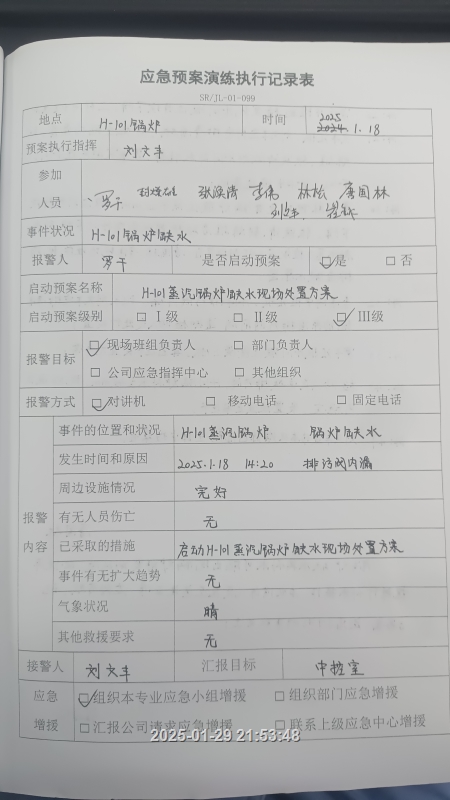 应急预案演练执行记录表
SR/JL-01-099
地点 H-101锅炉 时间 2025
2024.1.18
预案执行指挥 刘文丰
参加人员 罗干 张涣涛 李伟 林松 唐国林
事件状况 H-101锅炉缺水
报警人 罗干 是否启动预案 ☑是 □否
启动预案名称 H-101蒸汽锅炉缺水现场处置方案
启动预案级别 □Ⅰ级 □Ⅱ级 ☑Ⅲ级
报警目标 ☑现场班组负责人 □部门负责人
□公司应急指挥中心 □其他组织
报警方式 ☑对讲机 □移动电话 □固定电话
报警内容
事件的位置和状况 H-101蒸汽锅炉 锅炉缺水
发生时间和原因 2025.1.18 14:20 排污阀内漏
周边设施情况 完好
有无人员伤亡 无
已采取的措施 启动H-101蒸汽锅炉缺水现场处置方案
事件有无扩大趋势 无
气象状况 晴
其他救援要求 无
接警人 刘文丰 汇报目标 中控室
应急增援 ☑组织本专业应急小组增援 □组织部门应急增援
□汇报公司请求应急增援 □联系上级应急中心增援
2025-01-29 21:53:48